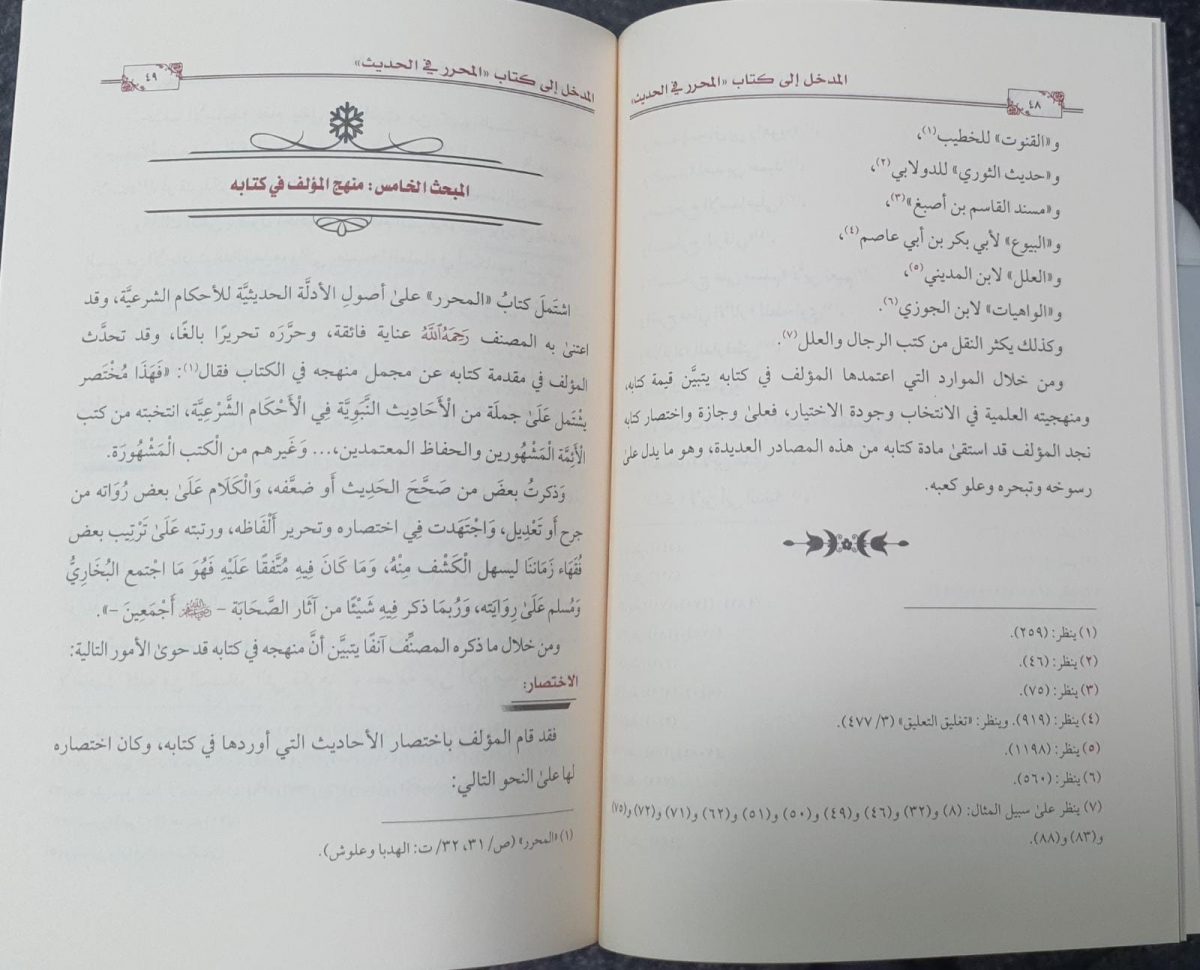 المدخل إلى كتاب «المحرر في الحديث»
٤٨
و«القنوت» للخطيب(١)،
و«حديث الثوري» للدولابي(٢)،
و«مسند القاسم بن أصبغ»(٣)،
و«البيوع» لأبي بكر بن أبي عاصم(٤)،
و«العلل» لابن المديني(٥)،
و«الواهيات» لابن الجوزي(٦).
وكذلك يكثر النقل من كتب الرجال والعلل(٧).
ومن خلال الموارد التي اعتمدها المؤلف في كتابه يتبيَّن قيمة كتابه،
ومنهجيته العلمية في الانتخاب وجودة الاختيار، فعلىٰ وجازة واختصار كتابه
نجد المؤلف قد استقىٰ مادة كتابه من هذه المصادر العديدة، وهو ما يدل علىٰ
رسوخه وتبحره وعلو كعبه.
(١) ينظر: (٢٥٩).
(٢) ينظر: (٤٦).
(٣) ينظر: (٧٥).
(٤) ينظر: (٩١٩). وينظر: «تغليق التعليق» (٣/ ٤٧٧).
(٥) ينظر: (١١٩٨).
(٦) ينظر: (٥٦٠).
(٧) ينظر علىٰ سبيل المثال: (٨) و(٣٢) و(٤٦) و(٤٩) و(٥٠) و(٥١) و(٦٢) و(٧١) و(٧٢) و(٧٥)
و(٨٣) و(٨٨).
المدخل إلى كتاب «المحرر في الحديث»
٤٩
المبحث الخامس: منهج المؤلف في كتابه
اشتَملَ كتابُ «المحرر» علىٰ أصولِ الأدلَّة الحديثيَّة للأحكام الشرعيَّة، وقد
اعتنىٰ به المصنف رَحِمَهُ اللَّهُ عناية فائقة، وحرَّرَه تحريرًا بالغًا، وقد تحدَّث
المؤلف في مقدمة كتابه عن مجمل منهجه في الكتاب فقال(١): «فَهَذَا مُخْتَصر
يشْتَمل عَلَىٰ جملَة من الْأَحَادِيث النَّبَوِيَّة فِي الْأَحْكَام الشَّرْعِيَّة، انتخبته من كتب
الْأَئِمَّة الْمَشْهُورين والحفاظ المعتمدين،... وَغَيرهم من الكتب الْمَشْهُورَة.
وَذكرتُ بعضَ من صَحَّحَ الحَدِيث أَو ضعَّفه، وَالْكَلَام عَلَىٰ بعض رُوَاته من
جرح أَو تَعْدِيل، وَاجْتَهَدت فِي اختصاره وتحرير أَلْفَاظه، ورتبته عَلَىٰ تَرْتِيب بعض
فُقَهَاء زَمَاننَا ليسهل الْكَشْف مِنْهُ، وَمَا كَانَ فِيهِ مُتَّفقًا عَلَيْهِ فَهُوَ مَا اجْتمع البُخَارِيُّ
وَمُسلم عَلَىٰ رِوَايَته، وَرُبمَا ذكر فِيهِ شَيْئًا من آثَار الصَّحَابَة – ﷺ أَجْمَعِينَ –».
ومن خلال ما ذكره المصنِّف آنفًا يتبيَّن أنَّ منهجه في كتابه قد حوىٰ الأمور التالية:
الاختصار:
فقد قام المؤلف باختصار الأحاديث التي أوردها في كتابه، وكان اختصاره
لها علىٰ النحو التالي:
(١) «المحرر» (ص/ ٣١، ٣٢/ ت: الهدبا وعلوش).